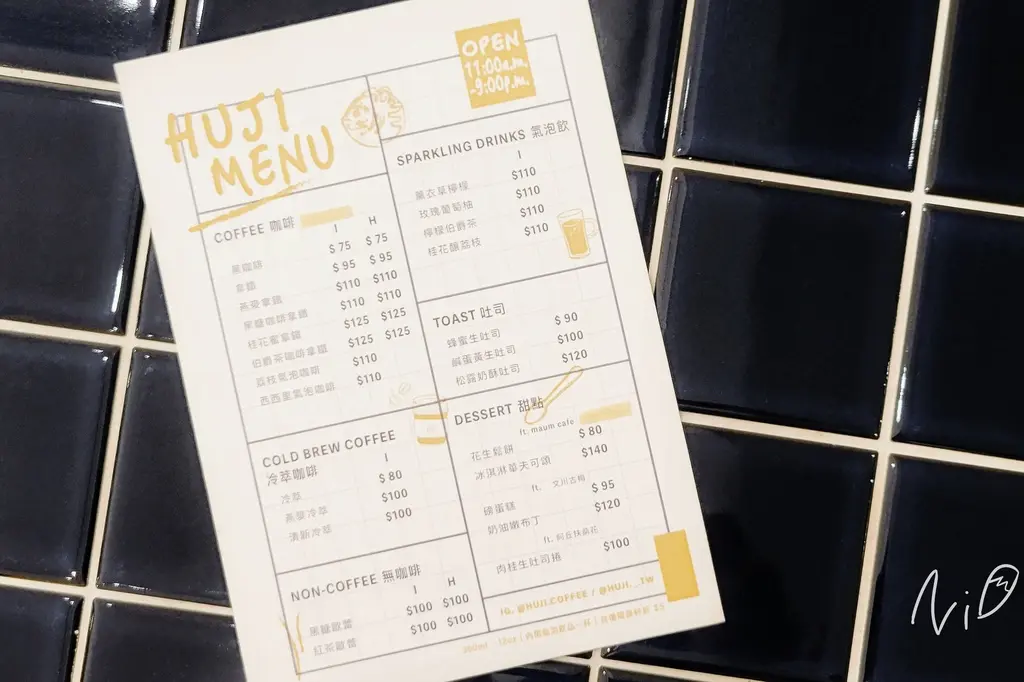 HUJI
MENU
OPEN
11:00a.m.
-9:00p.m.
COFFEE 咖啡
I H
黑咖啡 $75 $75
拿鐵 $95 $95
燕麥拿鐵 $110 $110
黑糖咖啡拿鐵 $110 $110
桂花蜜拿鐵 $125 $125
伯爵茶咖啡拿鐵 $125 $125
荔枝氣泡咖啡 $110
西西里氣泡咖啡 $110
COLD BREW COFFEE
冷萃咖啡
I
冷萃 $80
燕麥冷萃 $100
清新冷萃 $100
NON-COFFEE 無咖啡
I H
黑糖歐蕾 $100 $100
紅茶歐蕾 $100 $100
SPARKLING DRINKS 氣泡飲
I
薰衣草檸檬 $110
玫瑰葡萄柚 $110
檸檬伯爵茶 $110
桂花釀荔枝 $110
TOAST 吐司
蜂蜜生吐司 $90
鹹蛋黃生吐司 $100
松露奶酥吐司 $120
DESSERT 甜點
ft. maum cafe
花生鬆餅 $80
冰淇淋華夫可頌 $140
ft. 文川古梅
磅蛋糕 $95
奶油嫩布丁 $120
ft.
肉桂生吐司捲 $100
IG. @HUJI.COFFEE / @HUJI._.TW
360ml 12oz
NiD